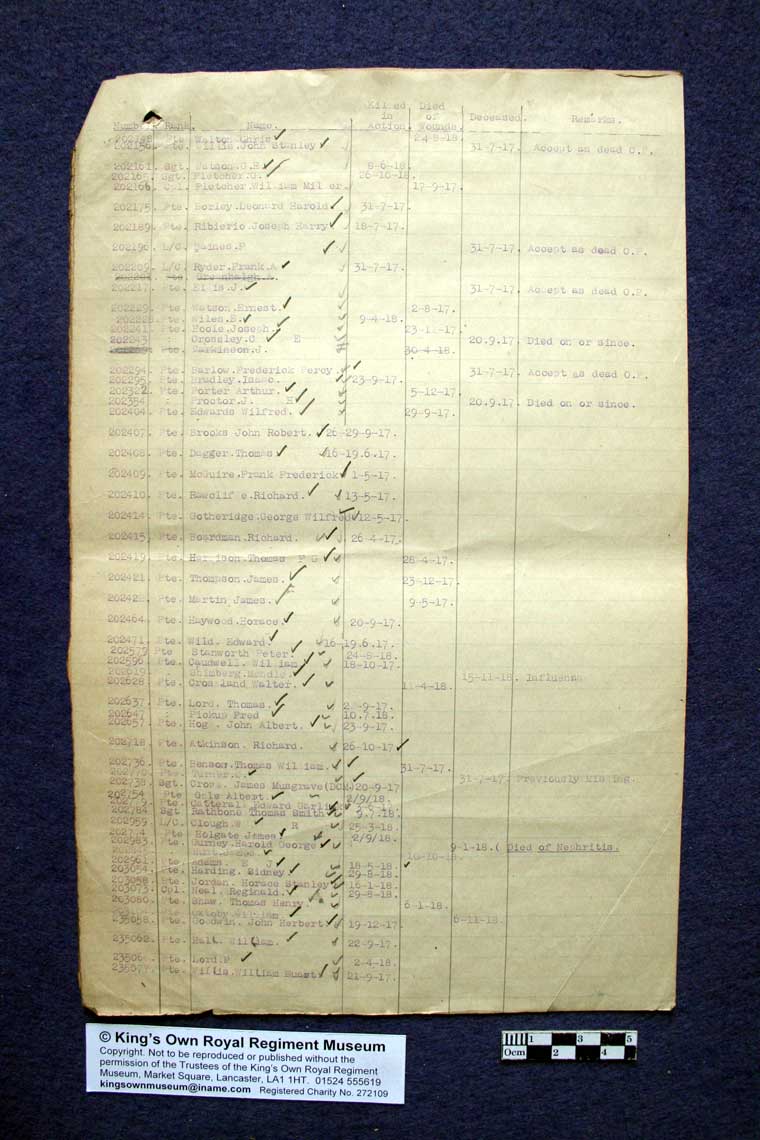 Killed Died
in of Deceased. Remarks.
Number. Rank. Name. Action. Wounds.
Pte. Walton 24-8-18.
202156. Pte. Willis.John Stanley 31-7-17. Accept as dead O.P.
202161. Sgt. Watson. 8-6-18.
202165. Sgt. Fletcher.G. 26-10-18.
202166. Cpl. Fletcher.William Miller. 17-9-17.
202175. Pte. Borley.Leonard Harold 31-7-17.
202189. Pte. Ribierio.Joseph Harry 18-7-17.
202196. L/C. 31-7-17. Accept as dead O.P.
202209. L/C. Ryder.Frank.A 31-7-17.
Pte. Greenhalgh
202217. Pte. Ellis.J. 31-7-17. Accept as dead O.P.
202229. Pte. Watson.Ernest. 2-8-17.
Pte. Wiles. 9-4-18.
202241. Pte. Poole.Joseph. 23-11-17.
202243. Crossley.C E 20.9.17. Died on or since.
Pte. Parkinson.J. 30-4-18.
202294. Pte. Barlow.Frederick Percy. 31-7-17. Accept as dead O.P.
202295. Pte. Bradley.Isaac. 23-9-17.
202322. Pte. Porter Arthur. 5-12-17.
202354. Proctor.J. H 20.9.17. Died on or since.
202404. Pte. Edwards Wilfred. 29-9-17.
202407. Pte. Brooks John Robert. 26-29-9-17.
202408. Pte. Dagger.Thomas 16-19.6.17.
202409. Pte. McGuire.Frank Frederick 1-5-17.
202410. Pte. Rawclif e.Richard. 13-5-17.
202414. Pte. Gotheridge.George Wilfred 12-5-17.
202415. Pte. Boardman.Richard. 26-4-17.
202419. Pte. Harrison.Thomas 28-4-17.
202421. Pte. Thompson.James. 23-12-17.
Pte. Martin James. 9-5-17.
202464. Pte. Haywood.Horace. 20-9-17.
202471. Pte. Wild. Edward. 16-19.6.17.
202579 Pte Stanworth Peter. 24-8-18.
202596. Pte. Caudwell. William. 18-10-17.
202619. 15-11-18. Influenza
202628. Pte. Crossland Walter. 11-4-18.
202637. Pte. Lord. Thomas. -9-17.
202647. Pte. Pickup Fred 10.7.18.
202657. Pte. Hogg. John Albert. 23-9-17.
202718. Pte. Atkinson. Richard. 26-10-17
202736. Pte. Benson.Thomas William. 31-7-17.
Pte. Turner. 31-7-17. Previously Missing.
202738. Sgt. Cross. James Musgrave(DCM) 20-9-17
202754 Pte Albert. 2/9/18.
Pte. Catterall.Edward
202784 Sgt Rathbone Thomas Smith 9.7.18.
202959. L/C. Clough. R 25-3-18.
Pte Holgate James 2/9/18.
202983. Pte. Gurney.Harold George 9-1-18.( Died of Nephritis.
202961. Pte. Adams. E J 18-5-18.
203054. Pte. Harding. Sidney 29-8-18.
Pte. Jordan. Horace Stanley 16-1-18.
203073. Cpl. Neal. Reginald 29-8-18.
203080. Pte. Shaw. Thomas Henry 6-1-18.
William 6-11-18.
235058. Pte. Goodwin. John Herbert 19-12-17.
235062. Pte. William. 22-9-17.
Pte. Lord.P 2-4-18.
235077. Pte. Willis.William 21-9-17.
© King's Own Royal Regiment Museum
Copyright. Not to be reproduced or published without the
permission of the Trustees of the King's Own Royal Regiment
Museum, Market Square, Lancaster, LA1 1HT. 01524 555619
kingsownmuseum@iname.com Registered Charity No. 272109
1 3 5
0cm 2 4